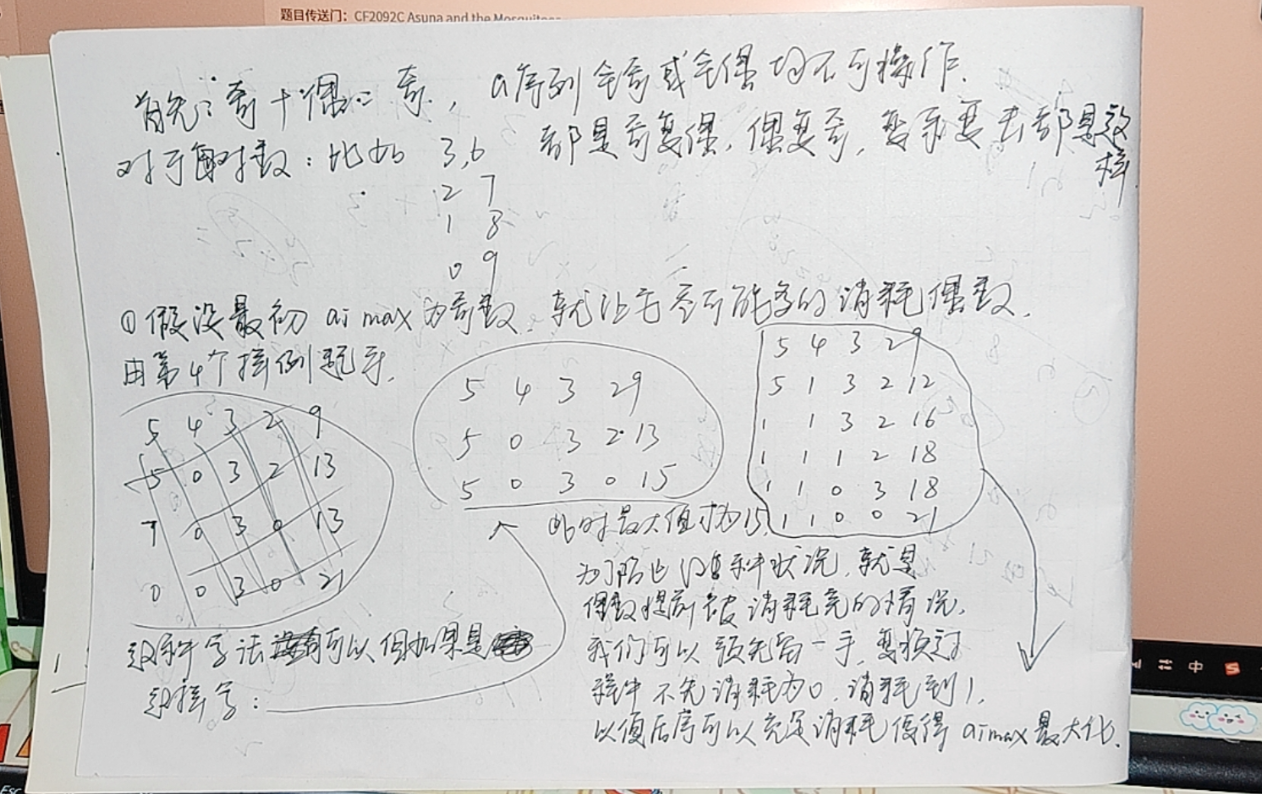 题目传送门：CF2092C Asuna and the Mosquitoes
首先：奇+偶=奇，a序列全奇或全偶均不可操作.
对于每对数：比如 3,6 都是奇变偶，偶变奇，变来变去都是这样.
2 7
1 8
0 9
①假设最初 ai max为奇数，就让它尽可能多的消耗偶数.
由第4个样例抓手.
5 4 3 2 9
5 0 3 2 13
7 0 3 0 13
0 0 3 0 21
这种写法可以但如果是
这样写：
5 4 3 2 9
5 0 3 2 13
5 0 3 0 15
此时最大值才为15
5 4 3 2 9
5 1 3 2 12
1 1 3 2 16
1 1 1 2 18
1 1 0 3 18
1 1 0 0 21
为了防止这种状况，就是
偶数提前被消耗完的情况.
我们可以预先留一手，变换过
程中不先消耗为0，消耗到1,
以便后序可以充足消耗使得 aimax最大化.
中
ESC